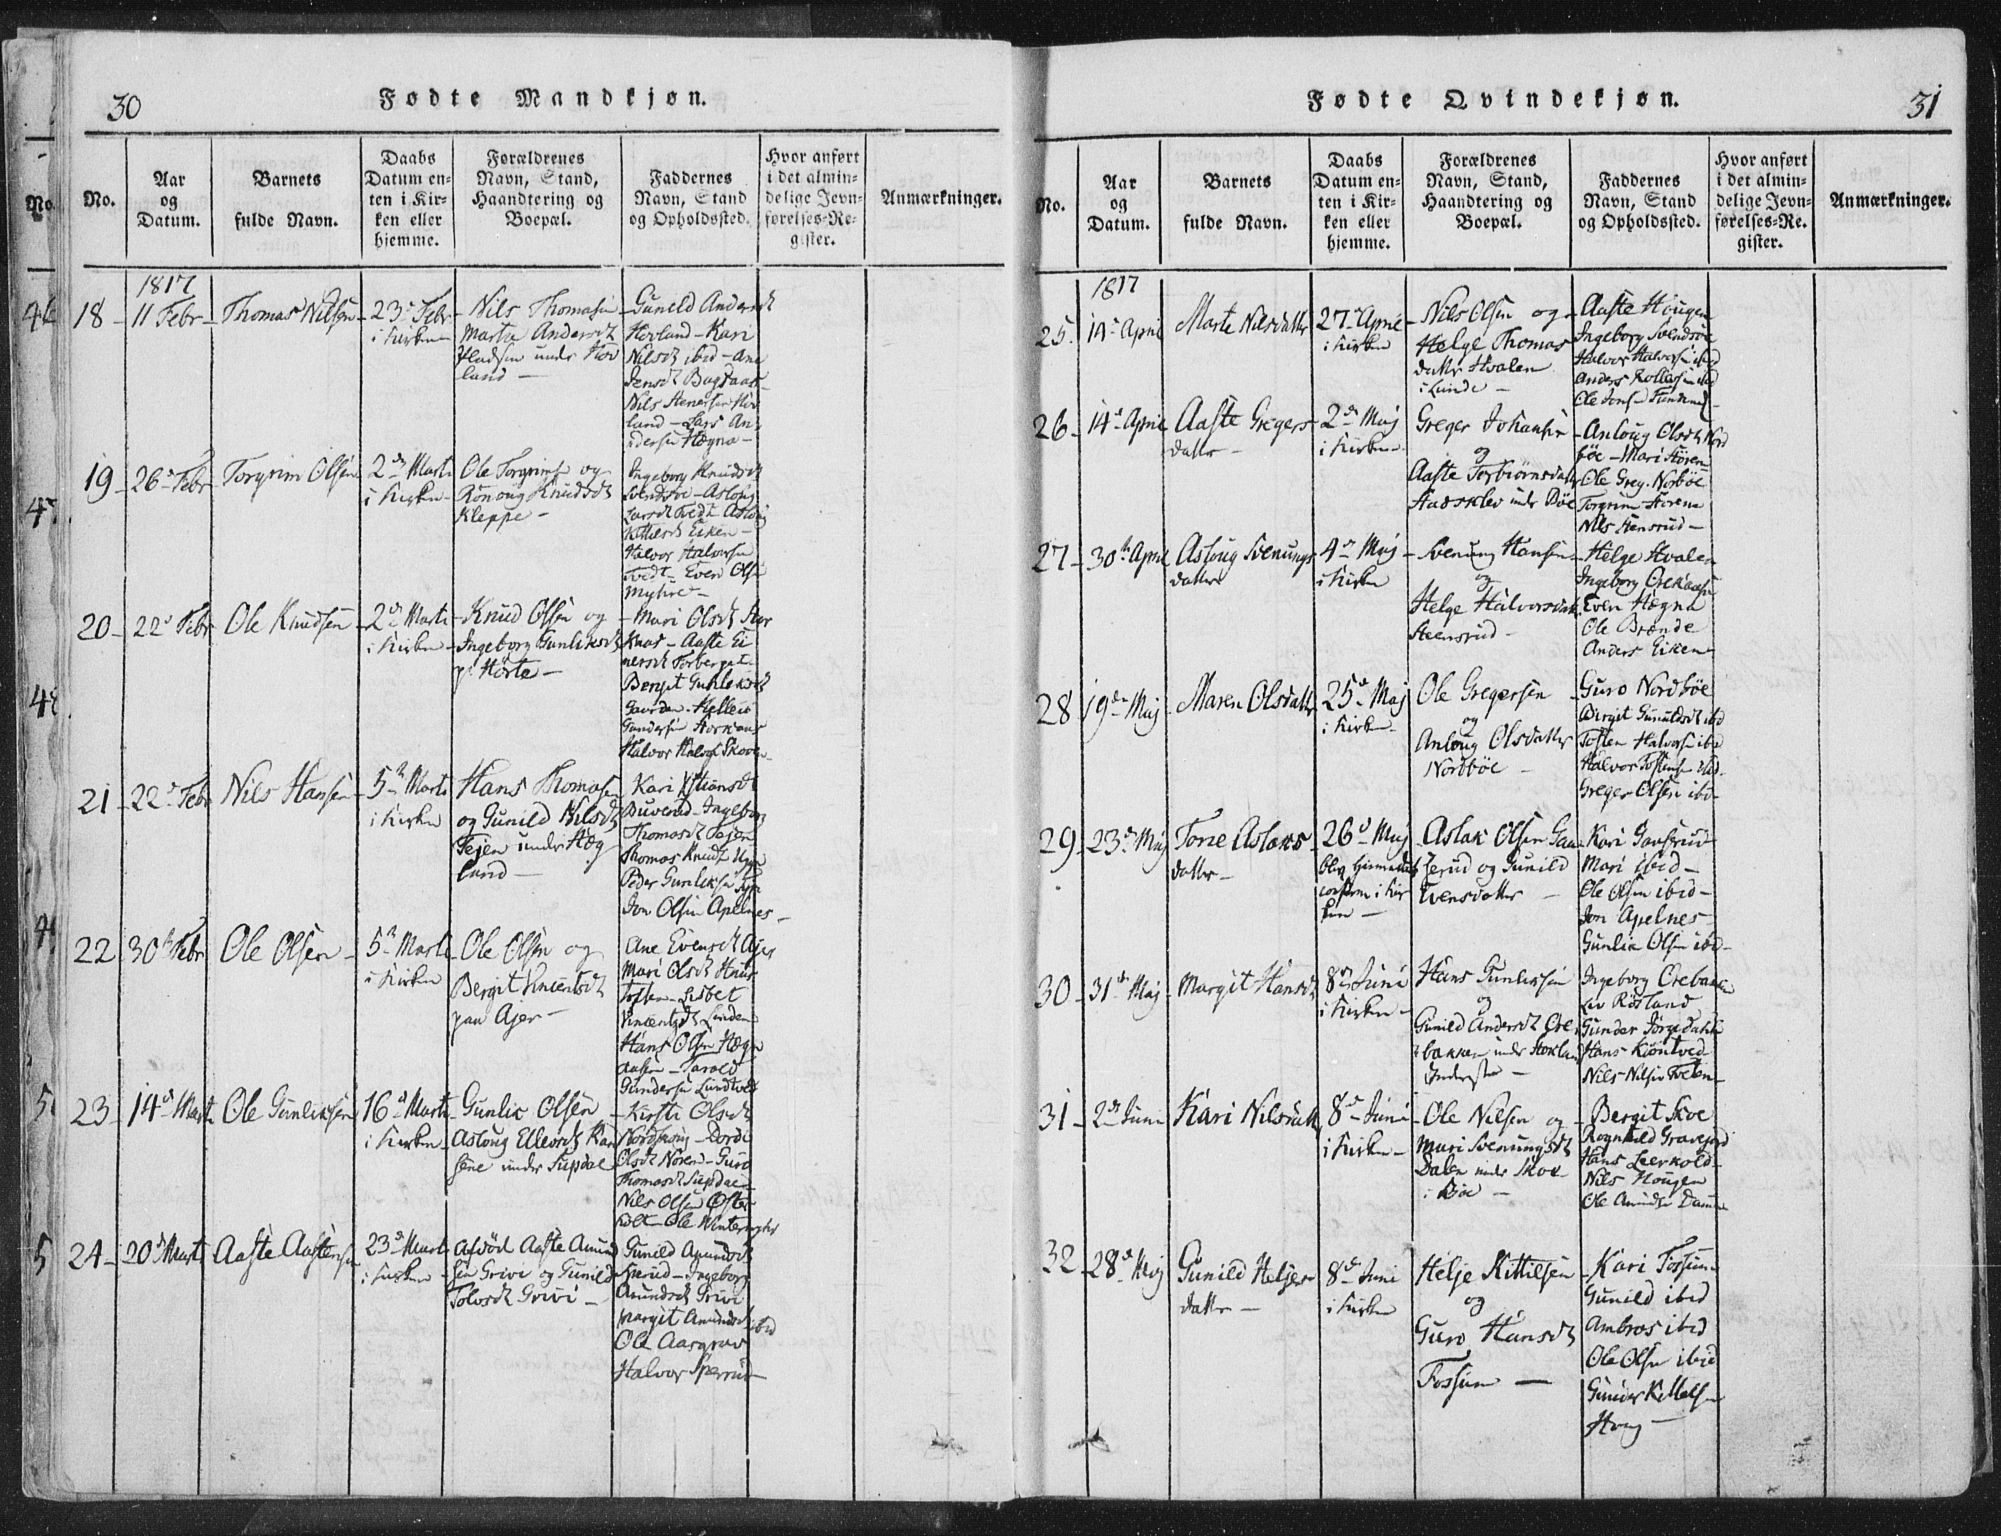 30
Fødte Mandkjøn.
No.
Aar
og
Datum.
Barnets
fulde Navn.
Daabs
Datum en-
ten i Kir-
ken eller
hjemme.
Forældrenes
Navn, Stand,
Haandtering og
Boepæl.
Faddernes
Navn, Stand
og Opholdssted.
Hvor anført
i det almin-
delige Jevn-
førelses-Re-
gister.
Anmærkninger.
1817
18 - 11 Febr -
Thomas Nilsen
23 Febr
i Kirken
Nils Thomasen
Marthe Andersdt
Pladsen under Hov
land -
Gunild Andersdt
Hovland - Kari
Nilsdt ibid - Ane
Jensdt Bagaas
Nils Stenersen Hov
land - Lars An
dersen Hægna -
19 - 26 Febr
Torgrim Olsen
2den Marti
i Kirken -
Ole Torgrims og
Rønoug Knudsdt
Kleppe -
Ingeborg Knudsdt
Svendsøe - Asloug
Larsdt Tvedt Asloug
Eiken -
Halvor Halvorsen
Tvedt - Even Olsen
Myhre -
20 - 22 Febr
Ole Knudsen
2den Marti
i Kirken -
Knud Olsen og
Ingeborg Gunliksdt
p. Hørte -
Mari Olsdt Stor
Knas - Aaste Ei
nersdt Torbergst
Bergit Gunleksdt
Gaarden - Kelleiv
Gundersen
Halvor Halvors Skoven
21 - 22 Febr
Nils Hansen
5te Marti
i Kirken
Hans Thomasen
og Gunild Nilsdt
Tejen under Hæg
land -
Kari Kistiansdt
Duverud - Ingeborg
Thomasdt Tejen
Thomas Knuds
Peder Gunliksen
Jon Olsen Apelnes -
22 30te Febr
Ole Olsen -
5te Marti
i Kirken
Ole Olsen og
Bergit Vincentsdt
paa Ajer -
Ane Evensdt Ajer
Mari Olsdt
Lisbet
Vincentsdt Linden
Hans Olsen Hægn
aasen - Tarald
Gundersen Lundtved
23 - 14de Marti
Ole Gunliksen
16de Marti
i Kirken
Gunlik Olsen
Asloug Ellevsdt
under Siipdae
Kirsti Olsdt
Nordskoug - Dorde
Olsdt Noren - Guro
Thomasdt Siipdae -
Nils Olsen Øster
holt - Ole
24 - 20de Marti
Aaste Aastensen
23de Marti
i Kirken
Afdød Aaste Amund
sen Grivi og Gunild
Tolvsdt Grivi -
Gunild Amundsdt
Ingeborg
Amundsdt Grivi
Margit Amundsdt ibid
Ole Aasgrav
Halvor Sperrud
Fødte Qvindekjøn.
31
No.
Aar
og
Datum.
Barnets
fulde Navn.
Daabs
Datum en-
ten i Kir-
ken eller
hjemme.
Forældrenes
Navn, Stand,
Haandtering og
Boepæl.
Faddernes
Navn, Stand
og Opholdssted.
Hvor anført
i det almin-
delige Jevn-
førelses-Re-
gister.
Anmærkninger.
1817
25. 14 April
Marte Nilsdatter
27 April
i Kirken
Nils Olsen og
Helge Thomas
datter Hvalen
i Lunde -
Aaste Hougen
Ingeborg Svendsøe
Halvor Halvorsen ibid
Anders Rollefsen ibid
Ole Jensen
26 - 14 April
Aaste Gregers
datter -
2den Maj
i Kirken -
Greger Johansen
og
Aaste Torbiørnsdatter
Haasklev under Bøe
Anloug Olsdt Nord
bøe - Mari Støren
Ole Greg. Norbøe
Torgrim Storene
Nils Stensrud -
27 - 30te April
Asloug Svenungs
datter
4de Maj
i Kirken
Svenung Hansen
og
Helge Halvorsdatter
Steensrud -
Helge Hvalen
Ingeborg Orekaasen
Even Hægna
Ole Brænde
Anders Eiken
28 19de Maj
Maren Olsdatter
25de Maj
i Kirken -
Ole Gregersen
og
Anloug Olsdatter
Nordbøe -
Guro Nordbøe
Birgit Gunuldsdt ibid
Tosten Halvorsen ibid
Halvor Tostensen ibid
Greger Olsen ibid
29 - 23de Maj
Tone Aslaks
datter -
26de Maj
blev hjemmedøbt
confirm i Kir
ken -
Aslak Olsen Gau
zerud og Gunild
Evensdatter -
Kari Gauserud
Mari ibid -
Ole Olsen ibid -
Jon Apelnes
Gunlik Olsen ibid -
30 - 31te Maj
Margit Hansdt
8de Juni
i Kirken -
Hans Gunliksen
og
Gunild Andersdt Ore
bakken under Stokland
Ingeborg Orebakken
Liv Røsland
Gunder Jørgedahl
Hans Kiøntved
Nils Nilsen Tveten -
31 - 2den Juni
Kari Nilsdatter
8de Juni
i Kirken -
Ole Nilsen og
Mari Svenungsdt
Dalen under Skoe
i Bøe -
Bergit Skoe
Rognhild Gravejord
Hans Leerkold
Nils Hougen
Ole Amundsen
32 28de Maj
Gunild Helges
datter -
8de Juni
i Kirken
Helge Kittilsen
og
Guro Hansdt
Fossum -
Kari Fossum
Gunild ibid
Ambros ibid
Ole Olsen ibid
Gunder Kittelsen
Houg -